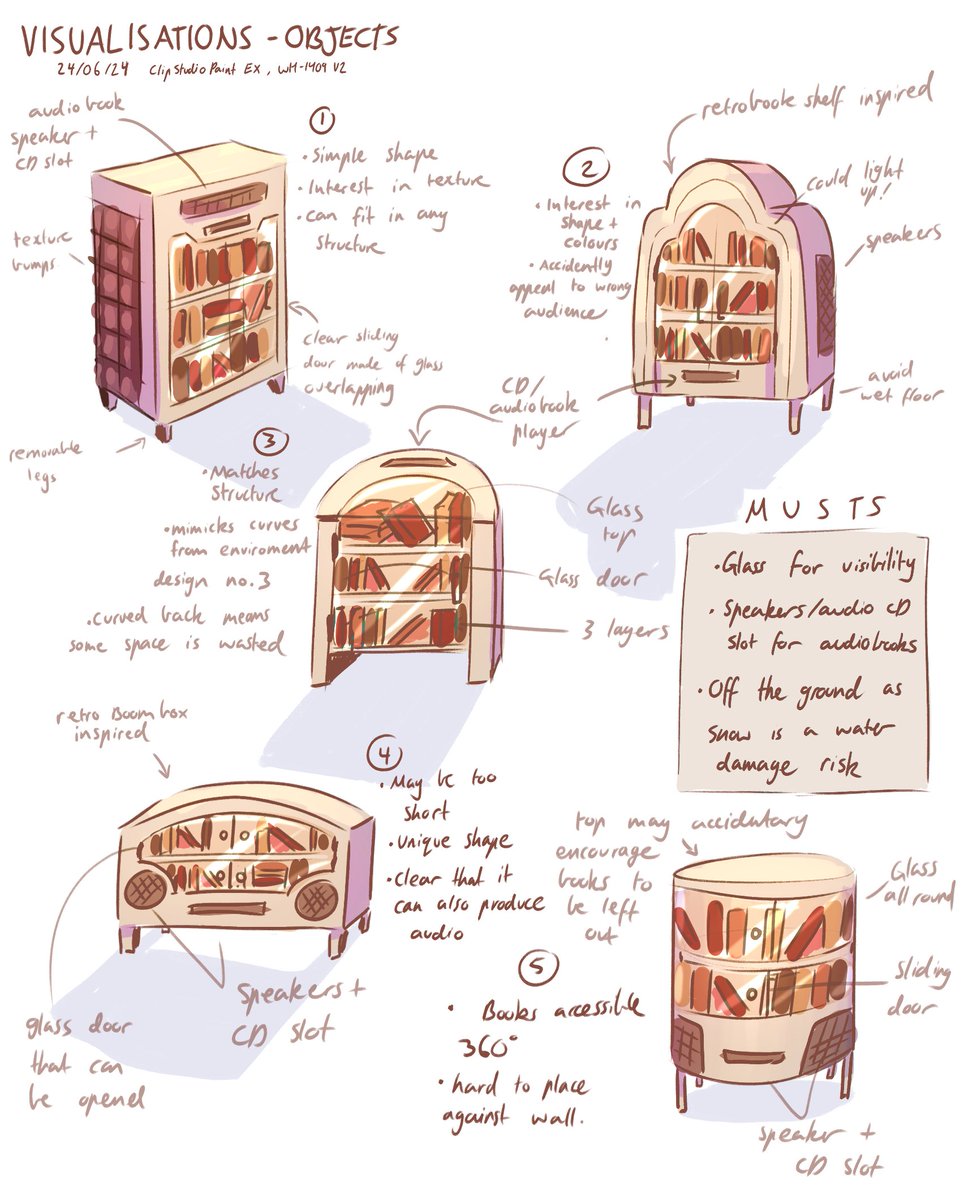 VISUALISATIONS - OBJECTS
24/06/24 Clip Studio Paint EX, WH-1409 V2
audiobook
speaker +
CD slot
texture
bumps
removable
legs
①
• Simple shape
• Interest in texture
• can fit in any
structure
clear sliding
door made of glass
overlapping
②
• Interest in
shape +
colours
• Accidently
appeal to wrong
audience
retrobook shelf inspired
could light
up!
speakers
avoid
wet floor
CD/
audiobook
player
③
• Matches
structure
• mimicks curves
from enviroment
design no.3
• curved back means
some space is wasted
Glass
top
Glass door
3 layers
MUSTS
• Glass for visibility
• Speakers/audio CD
slot for audiobooks
• Off the ground as
snow is a water
damage risk
retro Boombox
inspired
④
• May be too
short
• unique shape
• clear that it
can also produce
audio
Speakers +
CD slot
glass door
that can
be opened
⑤
• Books accessible
360°
• hard to place
against wall.
top may accidutary
encourage
books to
be left
out
Glass
all round
Sliding
door
speaker +
CD slot